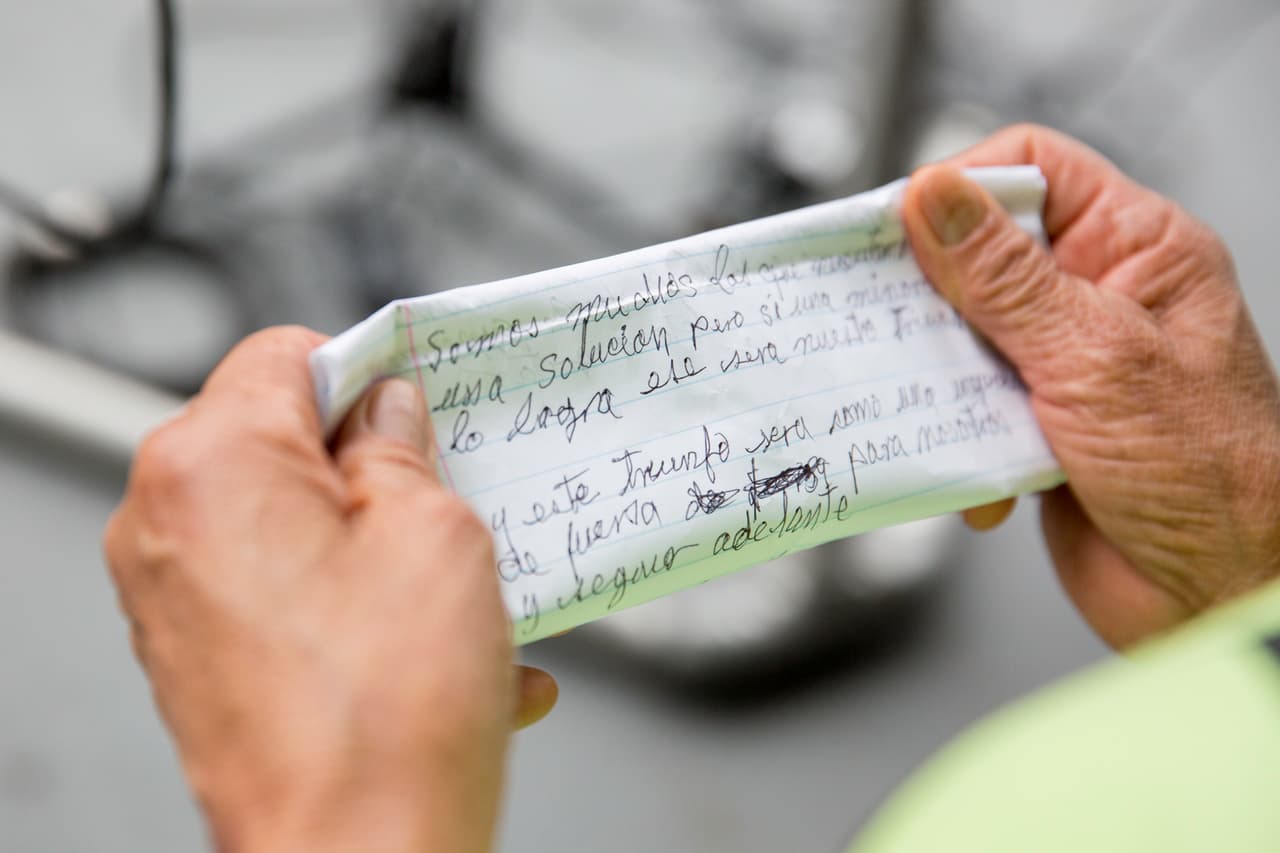 Somos muchos los que
una solucion pero si una
lo logra ese sera nuestro
y este triunfo sera como una
de fuersa para nosotros
y seguir adelante